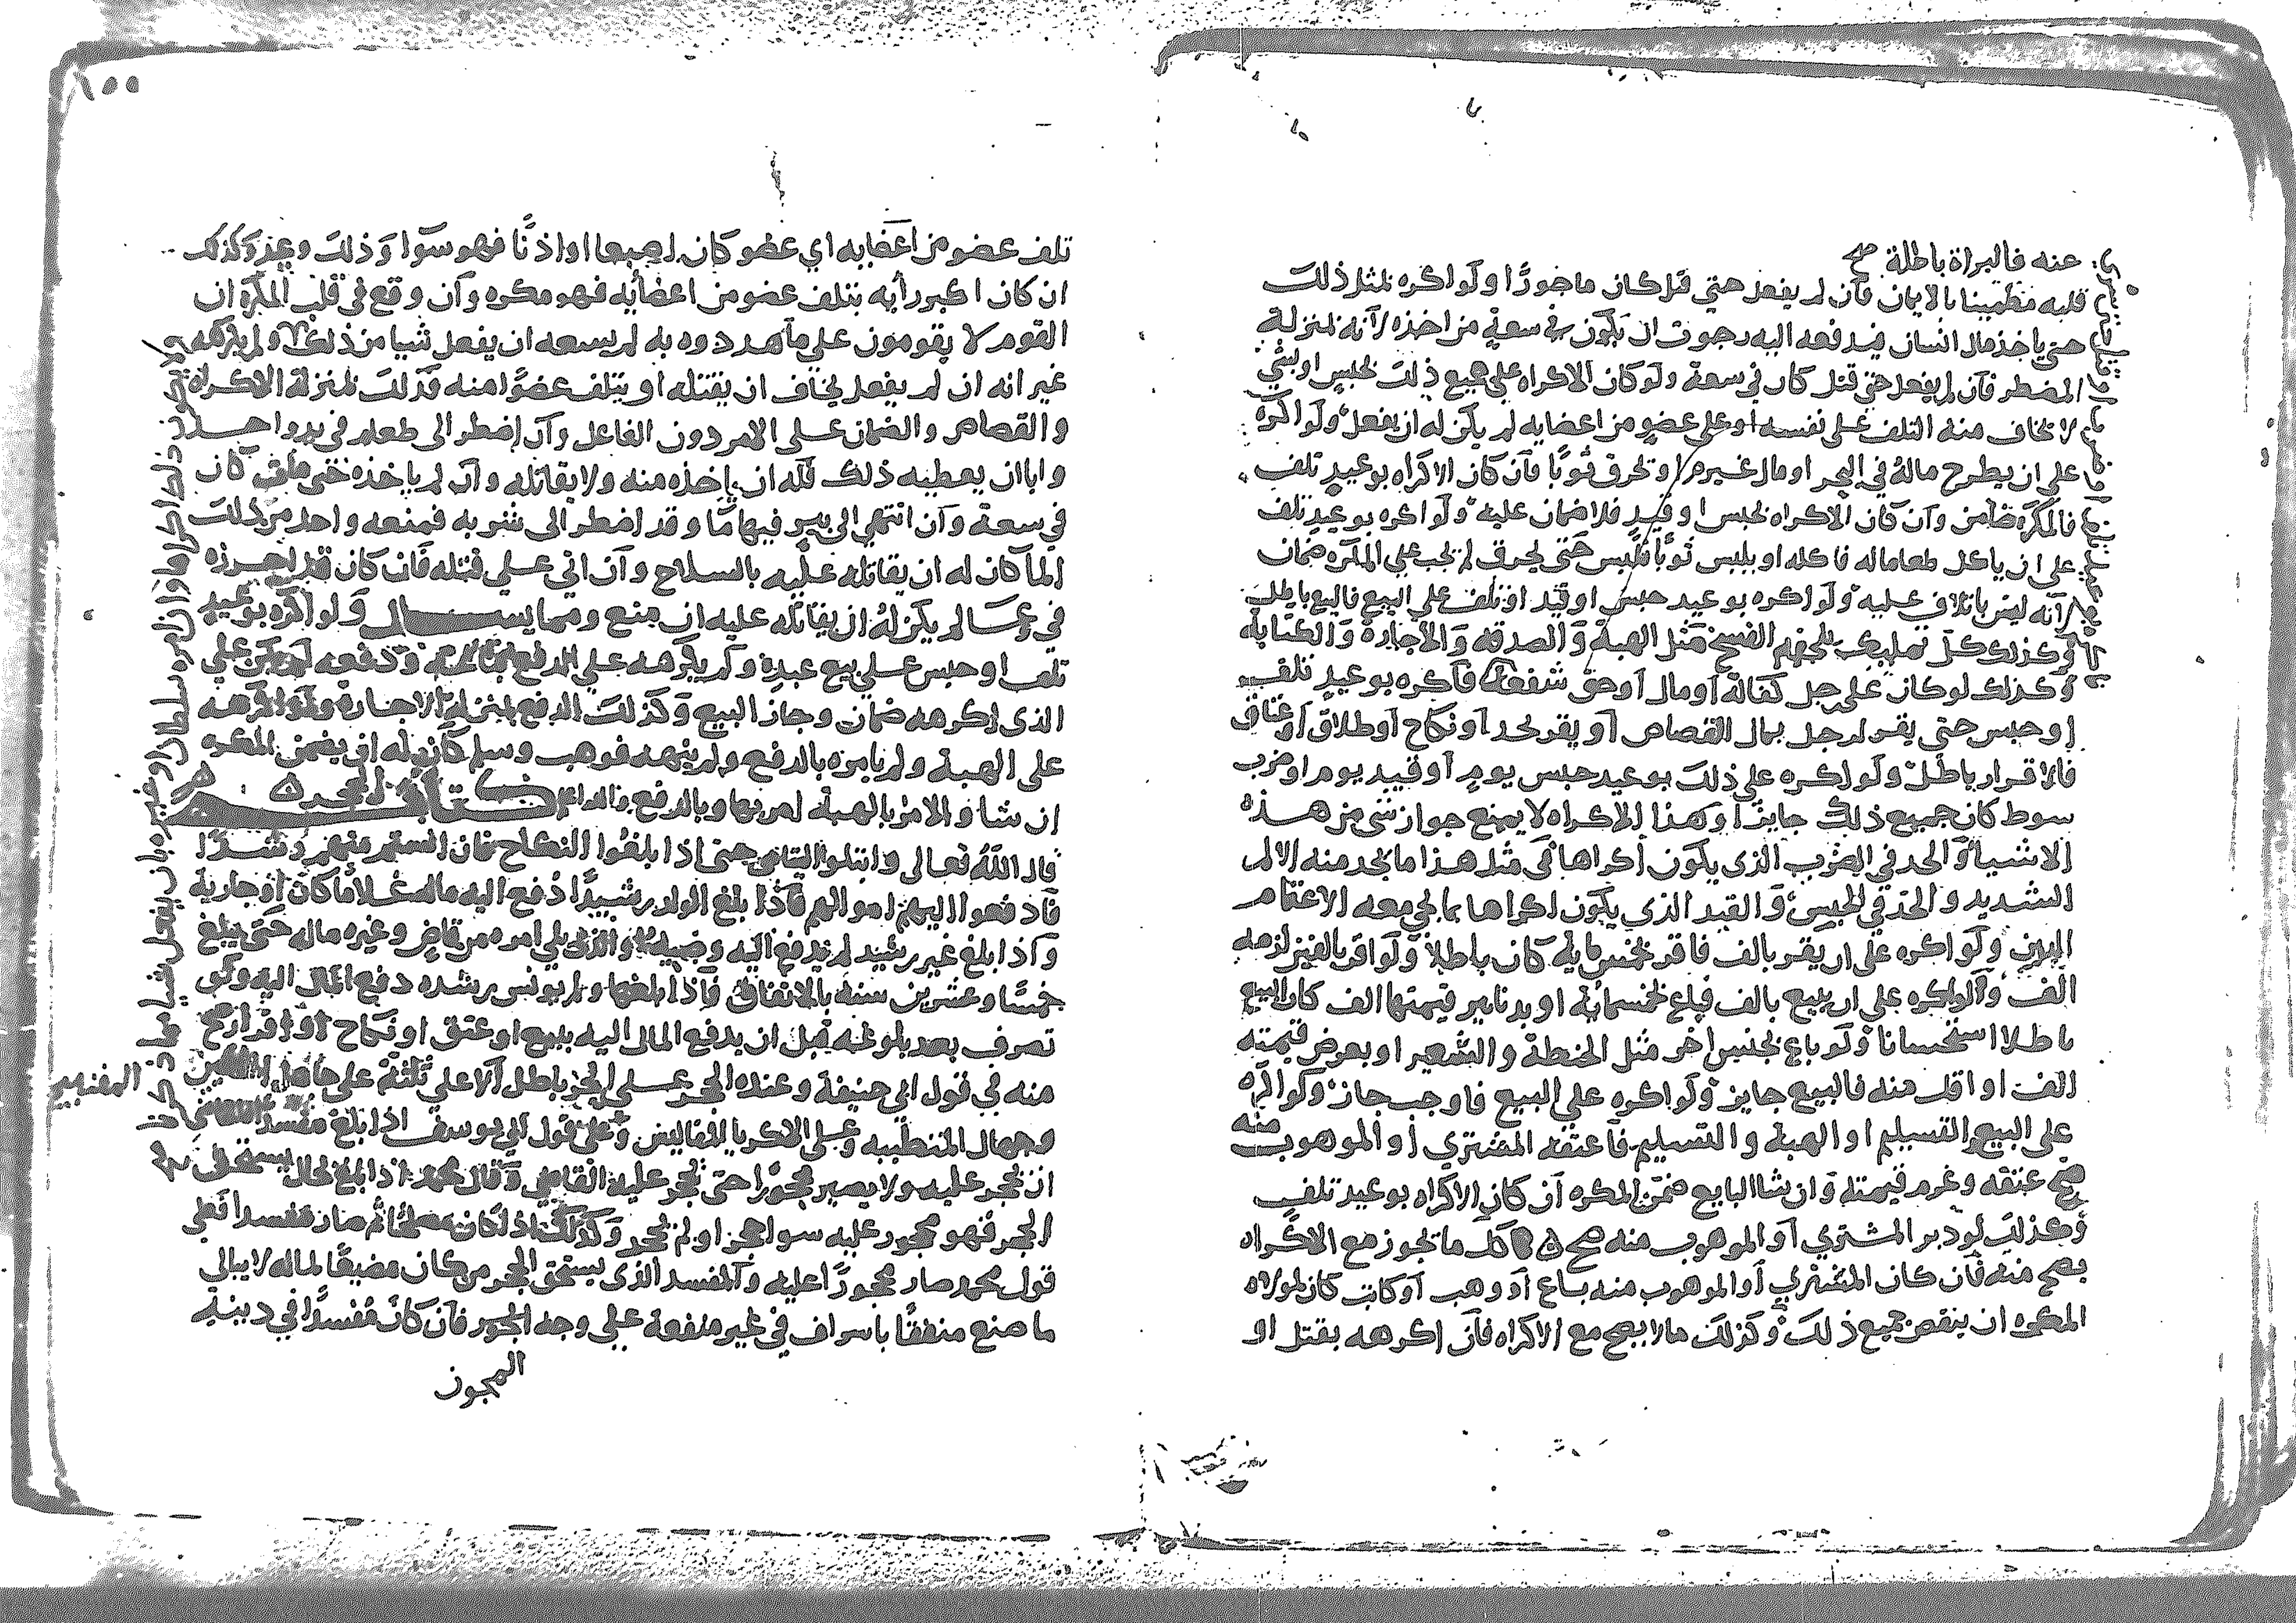 عنه فالبراة باطلة صح
قلبه مطمينا بالايمان فان لم يفعل حتي قتل كان ماجورا ولو اكره بمثل ذلك
حتي ياخذ مال انسان فيدفعه اليه رجوت ان يكون في سعة من اخذه لانه بمنزلة
المضطر فان لم يفعل حتي قتل كان في سعة ولو كان الاكراه علي جميع ذلك بحبس او بشي
لا يخاف منه التلف علي نفسه او علي عضو من اعضايه لم يكن له ان يفعل ولو اكره
علي ان يطرح ماله في البحر او مال غيره او تحرق ثوبا فان كان الاكراه بوعيد تلف
فالمكره ضامن وان كان الاكراه بحبس او قيد فلا ضمان عليه ولو اكره بوعيد تلف
علي ان ياكل طعاما له فاكله او يلبس ثوبا فلبس حتى يحرق لم يجب علي المكره ضمان
لانه ليس باتلاف عليه ولو اكره بوعيد حبس او قيد او تلف علي البيع فالبيع باطل
وكذلك كل تمليك يلحقه الفسخ مثل الهبة والصدقة والاجارة والكتابة
وكذلك لو كان علي رجل كفالة او مال او حق شفعة فاكره بوعيد تلف
او حبس حتي يقر لرجل بمال القصاص او يقر بحد او نكاح او طلاق او عتاق
فالاقرار باطل ولو اكره علي ذلك بوعيد حبس يوم او قيد يوم او ضرب
سوط كان جميع ذلك جايزا وهذا الاكراه لا يمنع جواز شي من هذه
الاشيا والحد في الضرب الذي يكون اكراها في مثل هذا ما يجد منه الالم
الشديد والحد في الحبس والقيد الذي يكون اكراها ما يجي معه الاغتمام
البين ولو اكره علي ان يقر بالف فاقر بخمس ماية كان باطلا ولو اقر بالفين لزمه
الف ولو اكره علي ان يبيع بالف فباع بخمسمائة او بدنانير قيمتها الف كان البيع
باطلا استحسانا ولو باع بجنس اخر مثل الحنطة والشعير او بعرض قيمته
الف او اقل منه فالبيع جايز ولو اكره علي البيع فاوجب جاز ولو اكره
على البيع والتسليم او الهبة والتسليم فاعتقه المشتري او الموهوب منه
صح عتقه وغرم قيمته وان شا البايع ضمن المكره ان كان الاكراه بوعيد تلف
وكذلك لو دبر المشتري او الموهوب منه صح كل ما تجوز مع الاكراه
يصح منه فان كان المشتري او الموهوب منه باع او وهب او كاتب كان لمولاه
المكره ان ينقض جميع ذلك وكذلك ما لا يصح مع الاكراه فان اكرهه بقتل او
١٥٥
تلف عضو من اعضايه اي عضو كان اصبعا او اذنا فهو سوا وذلك وعيد وكذلك
ان كان اكبر رأيه بتلف عضو من اعضائه فهو مكره وان وقع في قلب المكره ان
القوم لا يقومون علي ما هددوه به لم يسعه ان يفعل شيا من ذلك ولو لم يكره
غير انه ان لم يفعل يخاف ان يقتله او يتلف عضوا منه فذلك بمنزلة الاكراه
والقصاص والضمان علي الامر دون الفاعل وان اضطر الى طعام في يد واحد
وابا ان يعطيه ذلك فله ان ياخذه منه ولا يقاتله وان لم ياخذه حتى مات كان
في سعة وان انتهي الى بير فيها ما وقد اضطر الى شربه فمنعه واحد من ذلك
الما كان له ان يقاتله عليه بالسلاح وان اتي علي قتله فان كان قد احرزه
في وعا لم يكن له ان يقاتله عليه ان منع ومما يسال ولو اكره بوعيد
تلف او حبس علي بيع عبده ولم يكرهه علي الدفع فباعه ودفعه لم يكن علي
الذي اكرهه ضمان وجاز البيع وكذلك الدفع بمنزلة الاجازة ولو اكرهه
على الهبة ولم يامره بالدفع ولم ينهه فوهب وسلم كان له ان يضمن المكره
ان شا والامر بالهبة امر بها وبالدفع والله اعلم كتاب الحجر
قال الله تعالى وابتلوا اليتامى حتى اذا بلغوا النكاح فان انستم منهم رشدا
فادفعوا اليهم اموالهم فاذا بلغ الولد رشيدا دفع اليه ماله غلاما كان او جارية
واذا بلغ غير رشيد لم يدفع اليه وصيه والذي يلي امره من قاض وغيره ماله حتى يبلغ
خمسا وعشرين سنة بالاتفاق فاذا بلغها ولم يونس رشده دفع المال اليه ولو
تصرف بعد بلوغه قبل ان يدفع المال اليه ببيع او عتق او نكاح او اقرار صح
منه في قول ابي حنيفة وعنده الحجر علي الحر باطل الا علي ثلثة علي المفتيين
وجهال المتطببة وعلي الاكريا المفاليس وعلي قول ابي يوسف اذا بلغ مفسدا
ان يحجر عليه ولا يصير محجورا حتى يحجر عليه القاضي وقال محمد اذا بلغ بحال يستحق
الحجر فهو محجور عليه سوا حجر او لم يحجر وكذلك اذا كان مصلحا ثم صار مفسدا فعلي
قول محمد صار محجورا عليه والمفسد الذي يستحق الحجر من كان مضيعا لماله لا يبالي
ما صنع منفقا باسراف في غير منفعة علي وجه المجون فان كان مفسدا في دينه
المجون